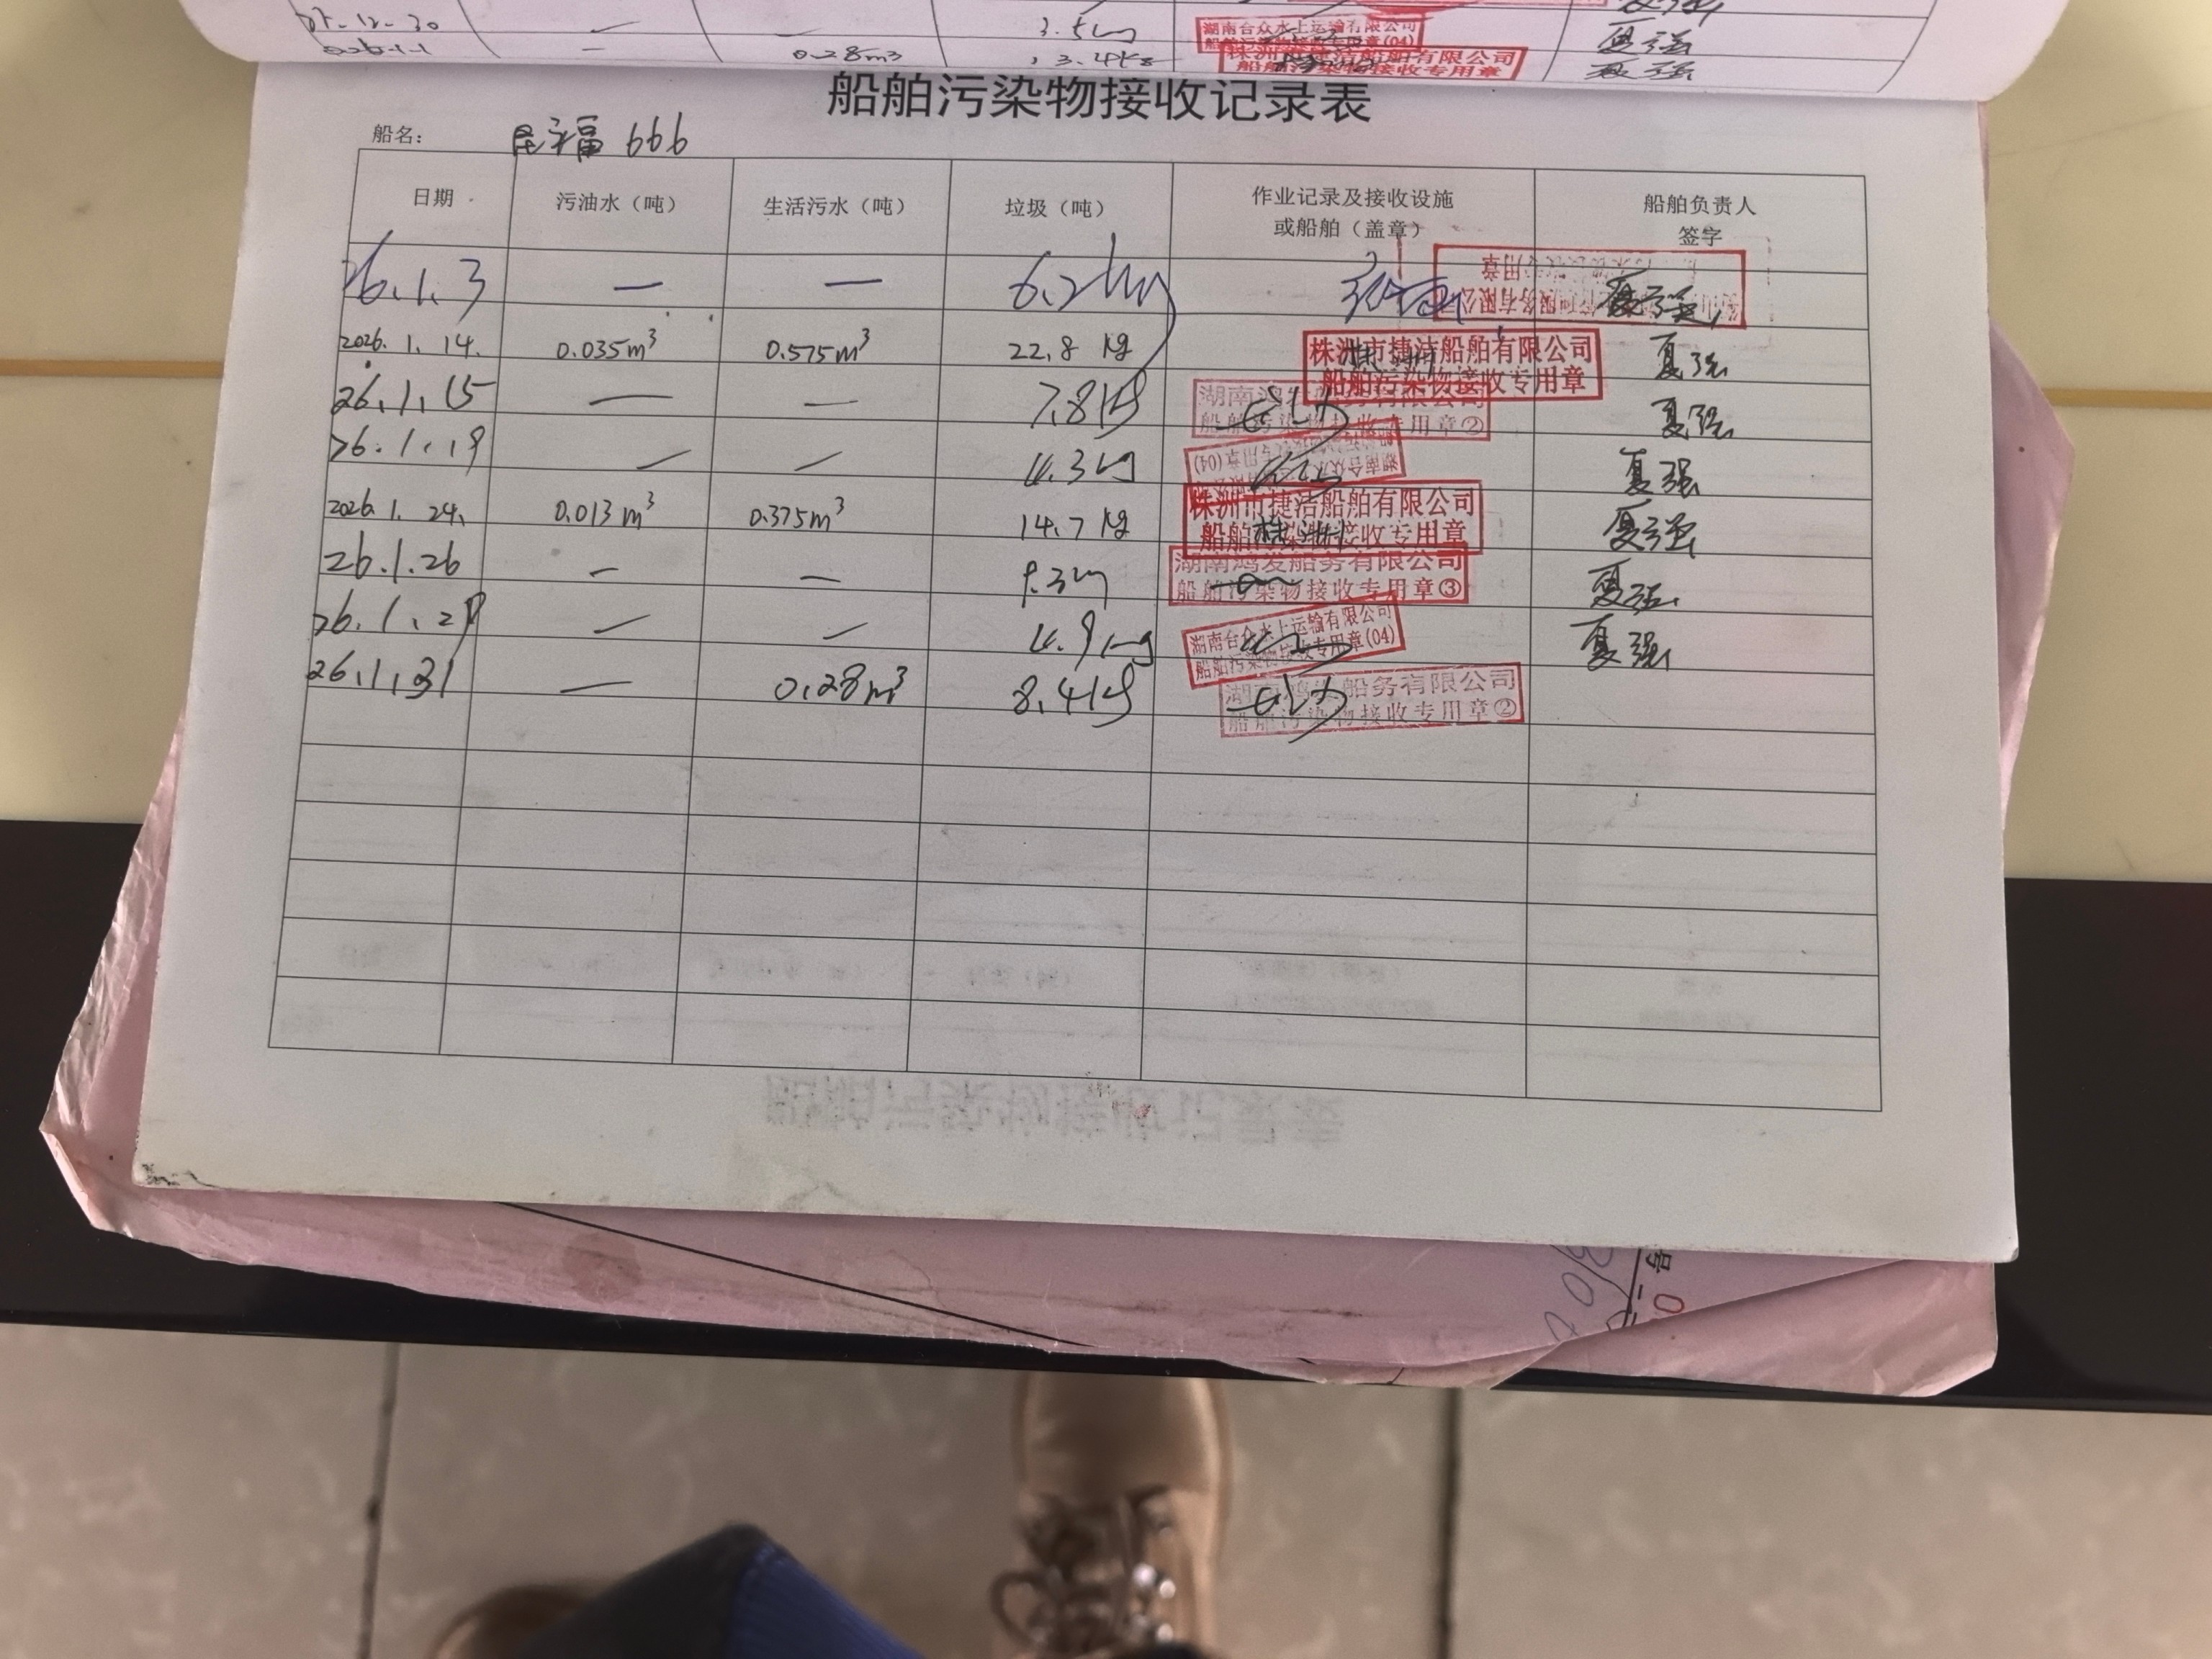 12.30 — — 3.5kg 湖南台众水上运输有限公司 夏强
— 0.28m3 3.4kg 株洲市捷洁船舶有限公司 夏强
船舶污染物接收专用章
船舶污染物接收记录表
船名: 666
日期 污油水（吨） 生活污水（吨） 垃圾（吨） 作业记录及接收设施 船舶负责人
或船舶（盖章） 签字
26.1.3 — — 夏强
2026.1.14. 0.035m³ 0.575m³ 22.8 kg 株洲市捷洁船舶有限公司 夏强
船舶污染物接收专用章
26.1.15 — — 7.8kg 夏强
船舶污染物接收专用章②
26.1.19 — — 4.3kg 夏强
2026.1.24. 0.013m³ 0.375m³ 14.7 kg 株洲市捷洁船舶有限公司 夏强
船舶污染物接收专用章
26.1.26 — — 湖南鸿发船务有限公司 夏强
船舶污染物接收专用章③
26.1.29 — — 4.9kg 湖南台众水上运输有限公司 夏强
船舶污染物接收专用章(04)
26.1.31 — 0.28m³ 8.4kg 湖南鸿发船务有限公司
船舶污染物接收专用章②
号